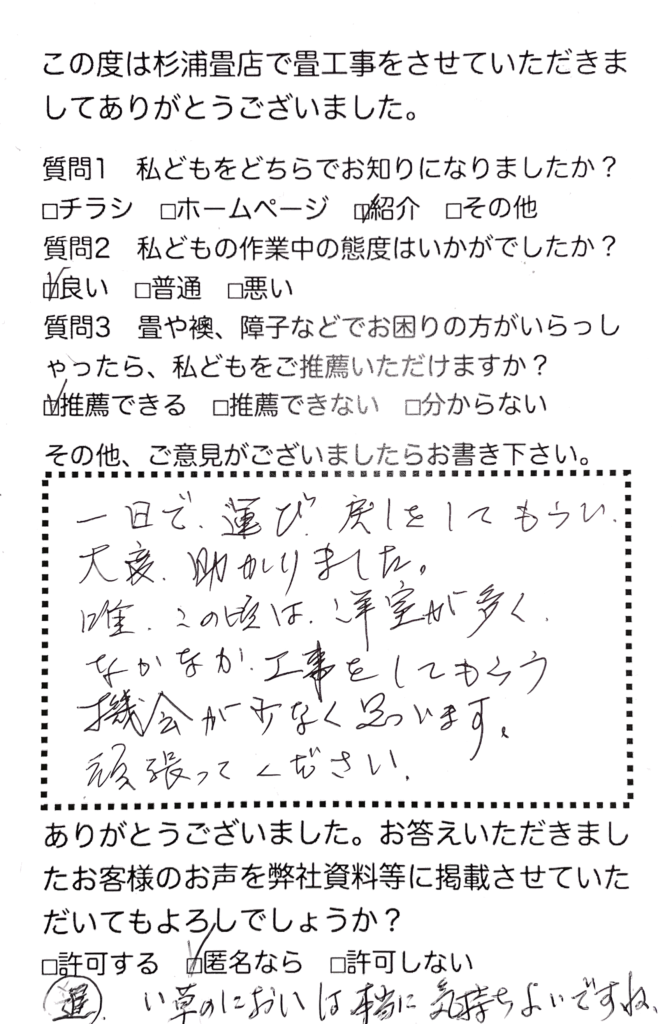 この度は杉浦畳店で畳工事をさせていただきま
してありがとうございました。
質問1　私どもをどちらでお知りになりましたか？
□チラシ　□ホームページ　☑紹介　□その他
質問2　私どもの作業中の態度はいかがでしたか？
☑良い　□普通　□悪い
質問3　畳や襖、障子などでお困りの方がいらっし
ゃったら、私どもをご推薦いただけますか？
☑推薦できる　□推薦できない　□分からない
その他、ご意見がございましたらお書き下さい。
一日で、運び、戻しをしてもらい、
大変、助かりました。
唯、この頃は、洋室が多く、
なかなか、工事をしてもらう
機会が少なく思います。
頑張ってください。
ありがとうございました。お答えいただきまし
たお客様のお声を弊社資料等に掲載させていた
だいてもよろしでしょうか？
□許可する　☑匿名なら　□許可しない
い草のにおいは本当に気持ちよいですね、